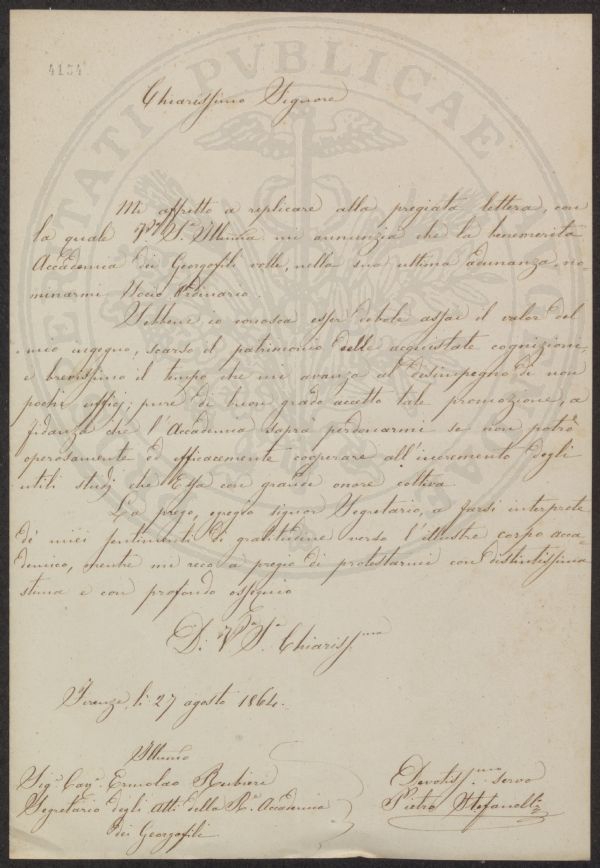 4154
Chiarissimo Signore
Mi affretto a replicare alla pregiata lettera, con
la quale V.ra S.a Ill.ma mi annunzia che la benemerita
Accademia dei Georgofili volle, nella sua ultima adunanza, no-
minarmi Socio Ordinario.
Sebbene io conosca esser debole assai il valor del
mio ingegno, scarso il patrimonio delle acquistate cognizioni,
e brevissimo il tempo che mi avanza al disimpegno di non
pochi ufficj; pure di buon grado accetto tale promozione, a
fidanza che l'Accademia saprà perdonarmi se non potrò
operosamente ed efficacemente cooperare all'incremento degli
utili studj che Essa con grande onore coltiva.
La prego, egregio signor Segretario, a farsi interprete
de' miei sentimenti di gratitudine verso l'illustre corpo acca-
demico, mentre mi reco a pregio di protestarmi con distintissima
stima e con profondo ossequio
D. V.ra S.a Chiariss.ma
Firenze, li 27 agosto 1864.
Ill.mo
Sig.r Cav.r Ermolao Rubieri
Segretario degli Atti della R.a Accademia
dei Georgofili
Devotiss.mo servo
Pietro Stefanelli
PVBLICAE